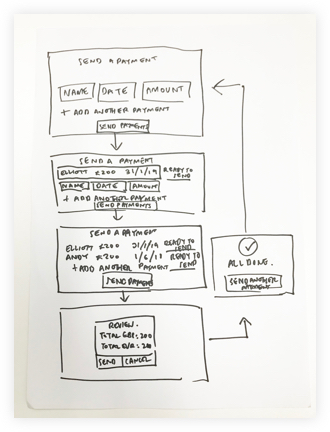 SEND A PAYMENT
NAME DATE AMOUNT
+ ADD ANOTHER PAYMENT
SEND PAYMENTS
SEND A PAYMENT
ELLIOTT £200 31/1/19 READY TO SEND
NAME DATE AMOUNT
+ ADD ANOTHER PAYMENT
SEND PAYMENTS
SEND A PAYMENT
ELLIOTT £200 31/1/19 READY TO SEND
ANDY £200 READY TO SEND
+ ADD ANOTHER PAYMENT
SEND PAYMENT
REVIEW.
TOTAL GBP: 200
TOTAL EUR:
SEND CANCEL
ALL DONE.
SEND ANOTHER
PAYMENT